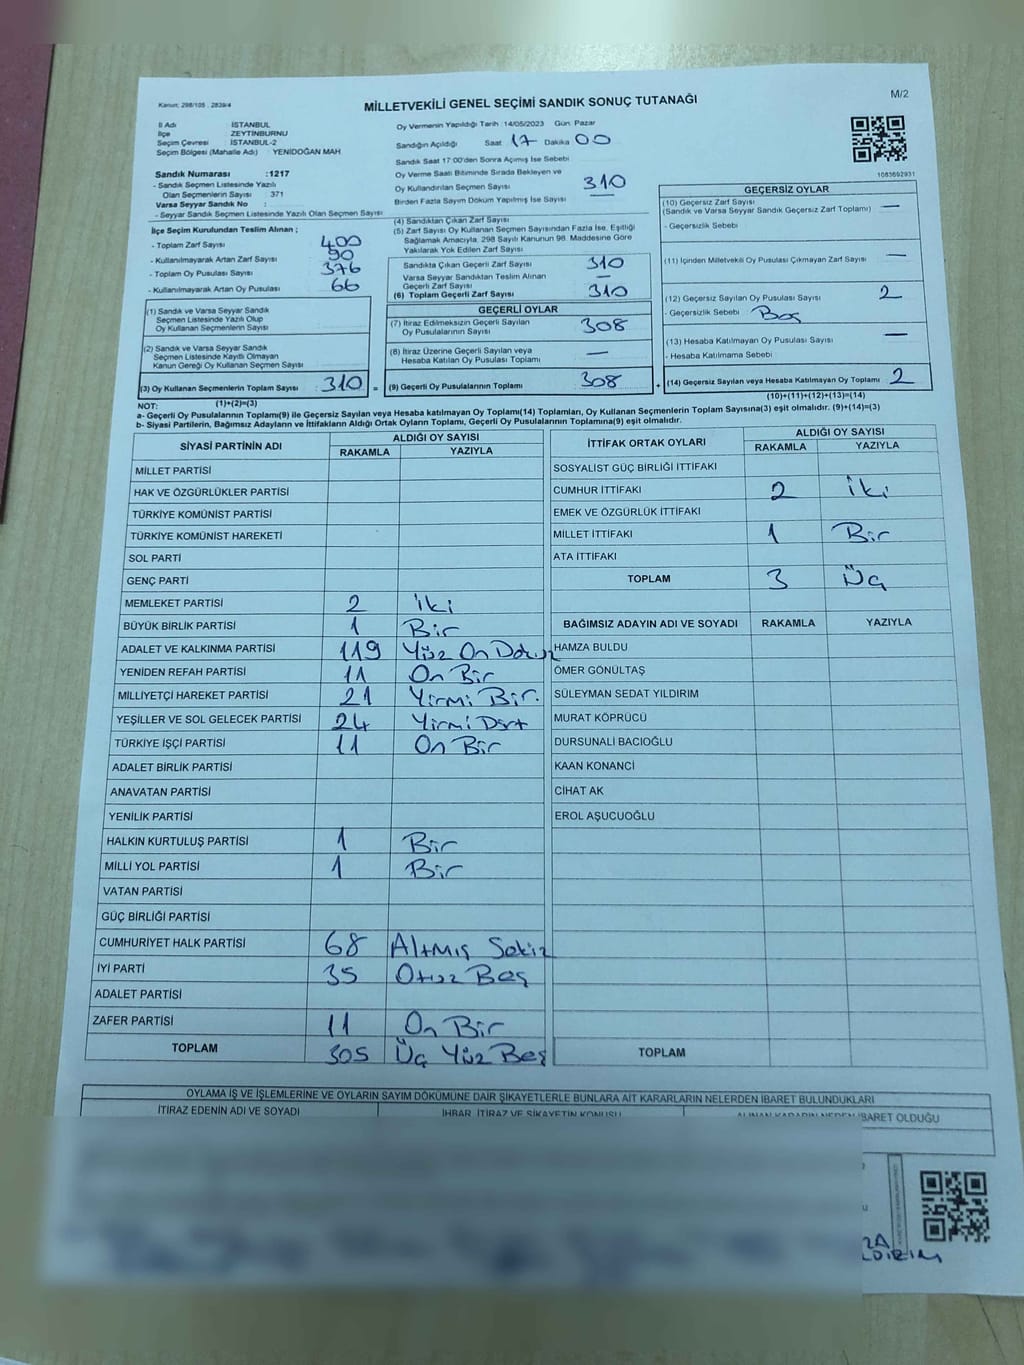 Kanun; 298/105 , 2839/4
MİLLETVEKİLİ GENEL SEÇİMİ SANDIK SONUÇ TUTANAĞI
M/2
İl Adı : İSTANBUL
İlçe : ZEYTİNBURNU
Seçim Çevresi : İSTANBUL-2
Seçim Bölgesi (Mahalle Adı) : YENİDOĞAN MAH.
Sandık Numarası :1217
- Sandık Seçmen Listesinde Yazılı
Olan Seçmenlerin Sayısı : 371
Varsa Seyyar Sandık No :
- Seyyar Sandık Seçmen Listesinde Yazılı Olan Seçmen Sayısı:
İlçe Seçim Kurulundan Teslim Alınan ;
- Toplam Zarf Sayısı 400
- Kullanılmayarak Artan Zarf Sayısı 90
- Toplam Oy Pusulası Sayısı 376
- Kullanılmayarak Artan Oy Pusulası 66
(1) Sandık ve Varsa Seyyar Sandık
Seçmen Listesinde Yazılı Olup
Oy Kullanan Seçmenlerin Sayısı
(2) Sandık ve Varsa Seyyar Sandık
Seçmen Listesinde Kayıtlı Olmayan
Kanun Gereği Oy Kullanan Seçmen Sayısı
(3) Oy Kullanan Seçmenlerin Toplam Sayısı : 310 =
(1)+(2)=(3)
Oy Vermenin Yapıldığı Tarih :14/05/2023 Gün: Pazar
Sandığın Açıldığı Saat 17 Dakika 00
Sandık Saat 17:00'den Sonra Açılmış İse Sebebi
Oy Verme Saati Bitiminde Sırada Bekleyen ve
Oy Kullandırılan Seçmen Sayısı 310
Birden Fazla Sayım Döküm Yapılmış İse Sayısı —
(4) Sandıktan Çıkan Zarf Sayısı
(5) Zarf Sayısı Oy Kullanan Seçmen Sayısından Fazla İse, Eşitliği
Sağlamak Amacıyla, 298 Sayılı Kanunun 98. Maddesine Göre
Yakılarak Yok Edilen Zarf Sayısı
Sandıkta Çıkan Geçerli Zarf Sayısı 310
Varsa Seyyar Sandıktan Teslim Alınan
Geçerli Zarf Sayısı —
(6) Toplam Geçerli Zarf Sayısı 310
GEÇERLİ OYLAR
(7) İtiraz Edilmeksizin Geçerli Sayılan
Oy Pusulalarının Sayısı 308
(8) İtiraz Üzerine Geçerli Sayılan veya
Hesaba Katılan Oy Pusulası Toplamı —
(9) Geçerli Oy Pusulalarının Toplamı 308 +
1083692931
GEÇERSİZ OYLAR
(10) Geçersiz Zarf Sayısı —
(Sandık ve Varsa Seyyar Sandık Geçersiz Zarf Toplamı)
- Geçersizlik Sebebi
(11) İçinden Milletvekili Oy Pusulası Çıkmayan Zarf Sayısı —
(12) Geçersiz Sayılan Oy Pusulası Sayısı 2
- Geçersizlik Sebebi Boş
(13) Hesaba Katılmayan Oy Pusulası Sayısı —
- Hesaba Katılmama Sebebi
(14) Geçersiz Sayılan veya Hesaba Katılmayan Oy Toplamı 2
(10)+(11)+(12)+(13)=(14)
NOT:
a- Geçerli Oy Pusulalarının Toplamı(9) ile Geçersiz Sayılan veya Hesaba katılmayan Oy Toplamı(14) Toplamları, Oy Kullanan Seçmenlerin Toplam Sayısına(3) eşit olmalıdır. (9)+(14)=(3)
b- Siyasi Partilerin, Bağımsız Adayların ve İttifakların Aldığı Ortak Oyların Toplamı, Geçerli Oy Pusulalarının Toplamına(9) eşit olmalıdır.
SİYASİ PARTİNİN ADI ALDIĞI OY SAYISI
RAKAMLA YAZIYLA
MİLLET PARTİSİ
HAK VE ÖZGÜRLÜKLER PARTİSİ
TÜRKİYE KOMÜNİST PARTİSİ
TÜRKİYE KOMÜNİST HAREKETİ
SOL PARTİ
GENÇ PARTİ
MEMLEKET PARTİSİ 2 İki
BÜYÜK BİRLİK PARTİSİ 1 Bir
ADALET VE KALKINMA PARTİSİ 119 Yüz On Dokuz
YENİDEN REFAH PARTİSİ 11 On Bir
MİLLİYETÇİ HAREKET PARTİSİ 21 Yirmi Bir.
YEŞİLLER VE SOL GELECEK PARTİSİ 24 Yirmi Dört
TÜRKİYE İŞÇİ PARTİSİ 11 On Bir
ADALET BİRLİK PARTİSİ
ANAVATAN PARTİSİ
YENİLİK PARTİSİ
HALKIN KURTULUŞ PARTİSİ 1 Bir
MİLLİ YOL PARTİSİ 1 Bir
VATAN PARTİSİ
GÜÇ BİRLİĞİ PARTİSİ
CUMHURİYET HALK PARTİSİ 68 Altmış Sekiz
İYİ PARTİ 35 Otuz Beş
ADALET PARTİSİ
ZAFER PARTİSİ 11 On Bir
TOPLAM 305 Üç Yüz Beş
İTTİFAK ORTAK OYLARI ALDIĞI OY SAYISI
RAKAMLA YAZIYLA
SOSYALİST GÜÇ BİRLİĞİ İTTİFAKI
CUMHUR İTTİFAKI 2 İki
EMEK VE ÖZGÜRLÜK İTTİFAKI
MİLLET İTTİFAKI 1 Bir
ATA İTTİFAKI
TOPLAM 3 Üç
BAĞIMSIZ ADAYIN ADI VE SOYADI RAKAMLA YAZIYLA
HAMZA BULDU
ÖMER GÖNÜLTAŞ
SÜLEYMAN SEDAT YILDIRIM
MURAT KÖPRÜCÜ
DURSUNALİ BACIOĞLU
KAAN KONANCİ
CİHAT AK
EROL AŞUCUOĞLU
TOPLAM
OYLAMA İŞ VE İŞLEMLERİNE VE OYLARIN SAYIM DÖKÜMÜNE DAİR ŞİKAYETLERLE BUNLARA AİT KARARLARIN NELERDEN İBARET BULUNDUKLARI
İTİRAZ EDENİN ADI VE SOYADI İHBAR, İTİRAZ VE ŞİKAYETİN KONUSU ALINAN KARARIN NEDEN İBARET OLDUĞU